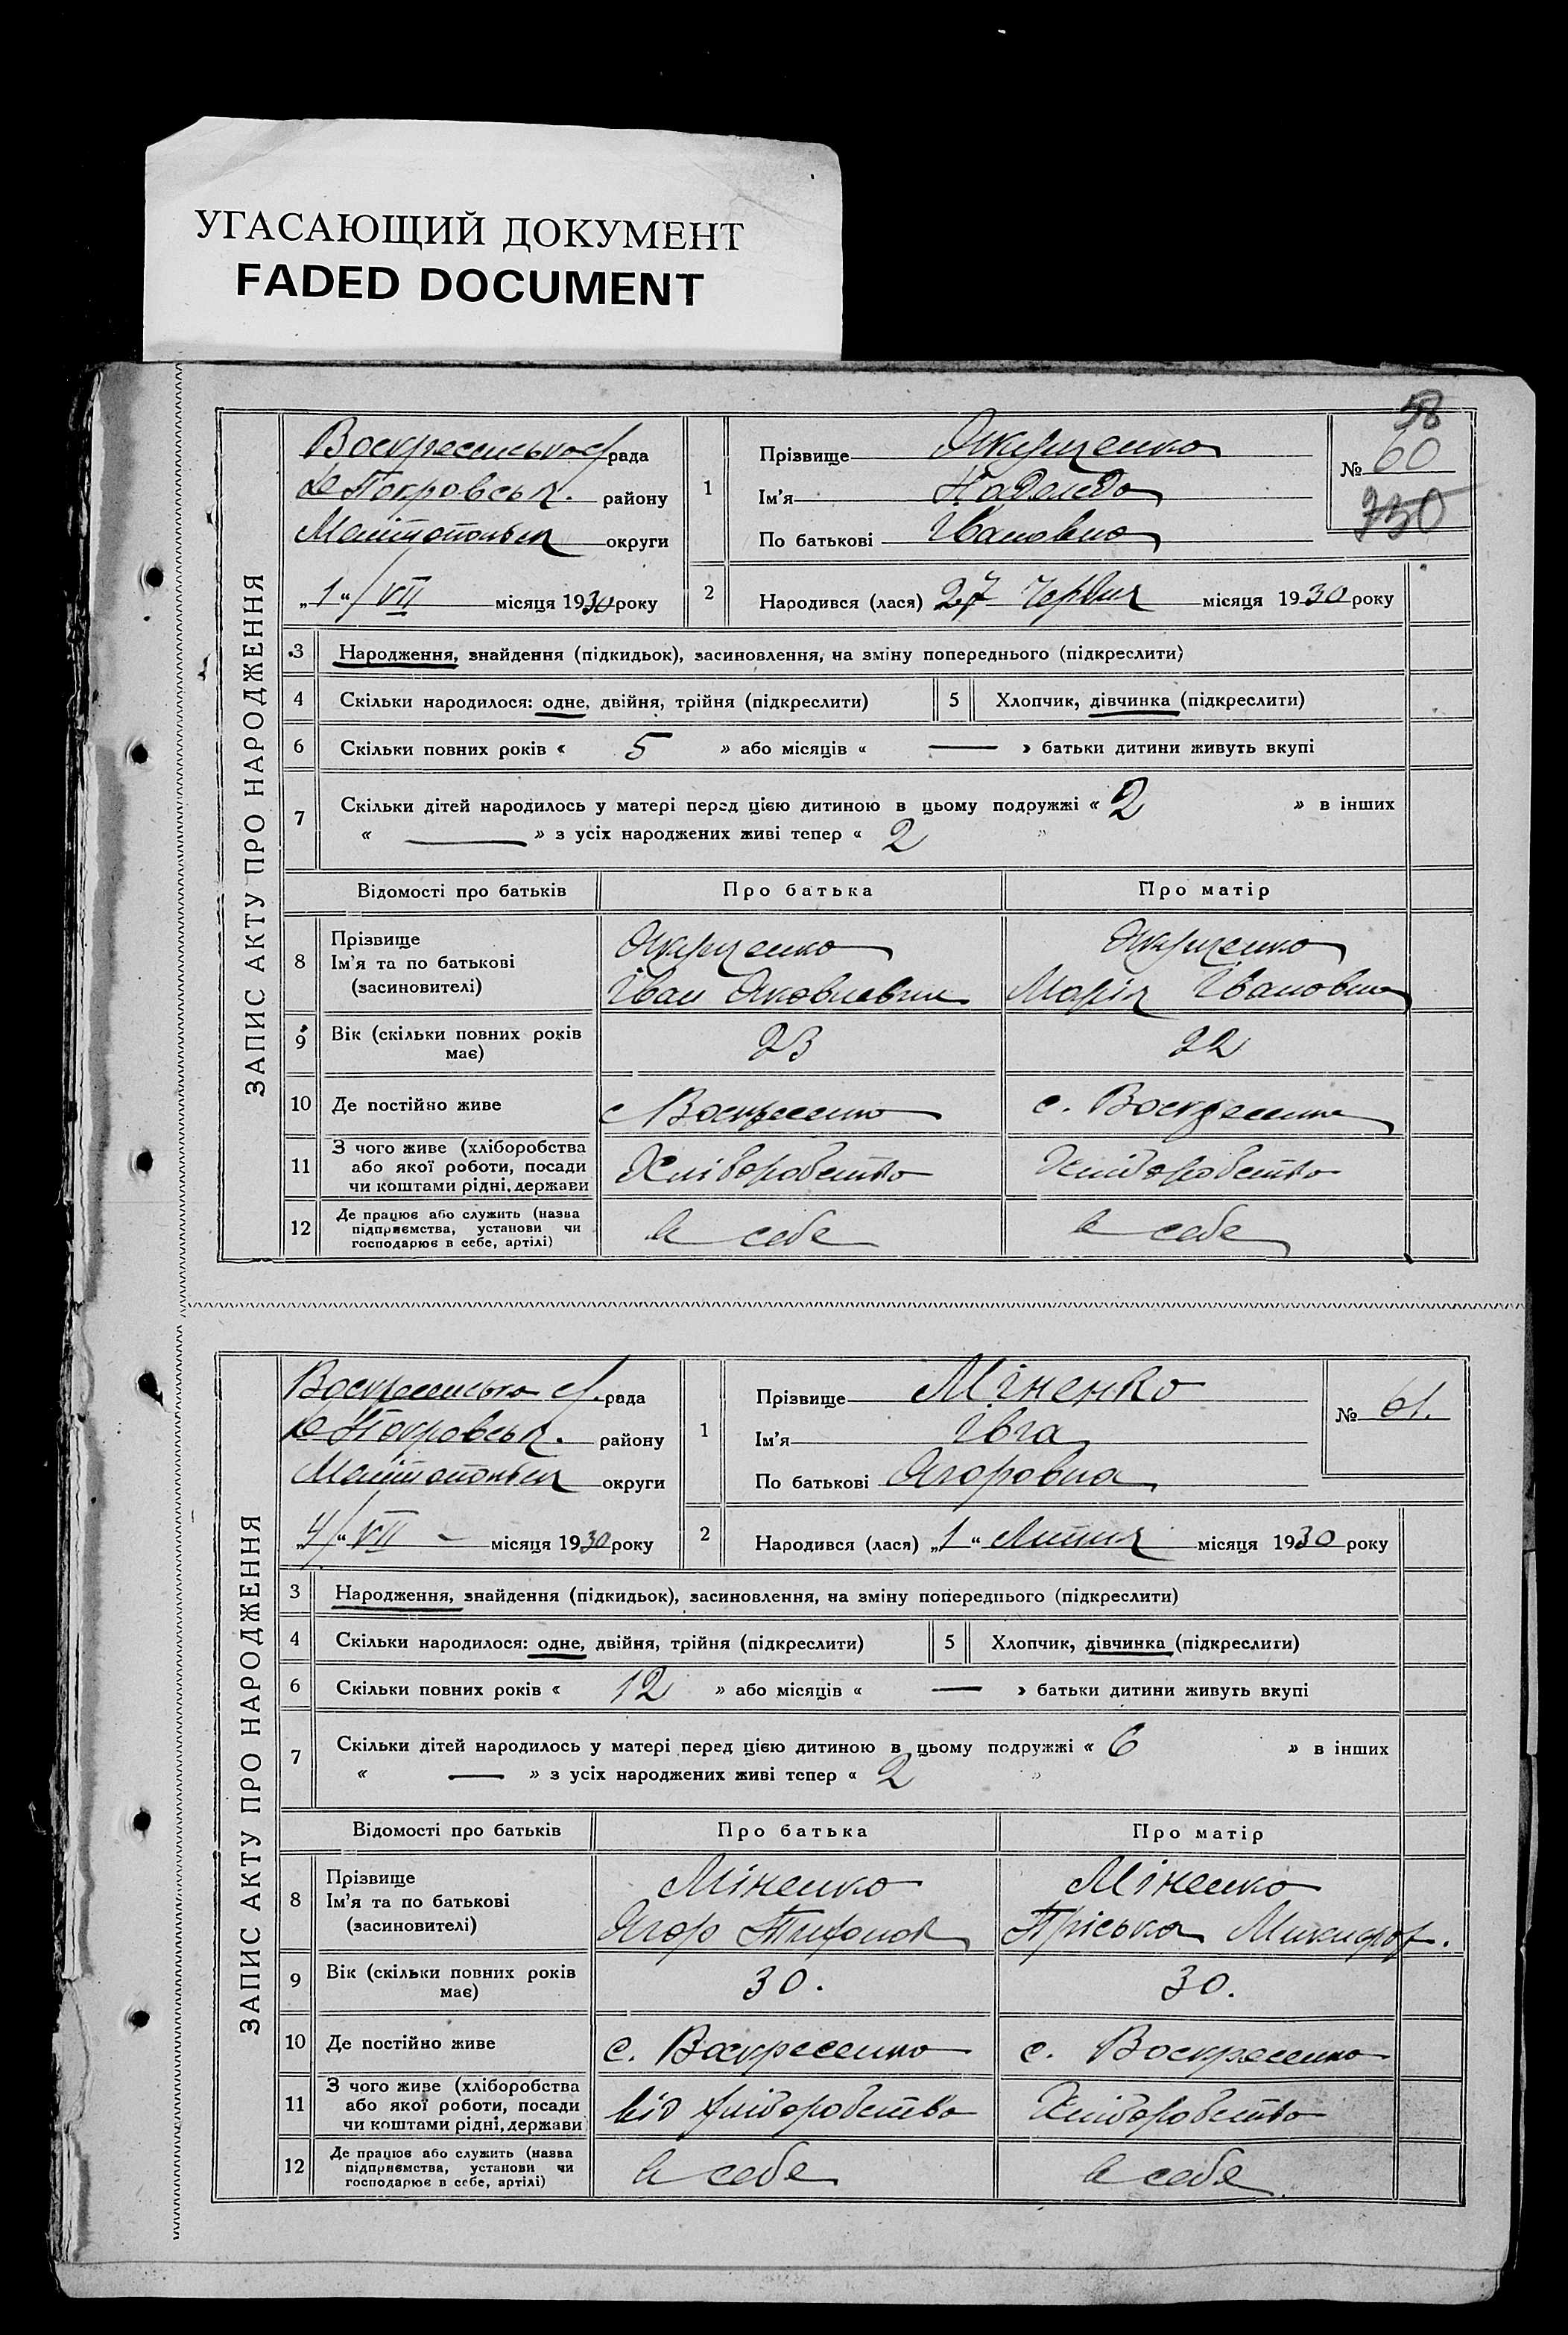 УГАСАЮЩИЙ ДОКУМЕНТ
FADED DOCUMENT
58
ЗАПИС АКТУ ПРО НАРОДЖЕННЯ
Воскресенська с/рада
Покровськ. району
Мелітопольск округи
„1“/VII місяця 1930 року
1 Прізвище
Ім'я Надежда
По батькові Івановна
№ 60
730
2 Народився (лася) 27 Червня місяця 1930 року
3 Народження, знайдення (підкидьок), засиновлення, на зміну попереднього (підкреслити)
4 Скільки народилося: одне, двійня, трійня (підкреслити) 5 Хлопчик, дівчинка (підкреслити)
6 Скільки повних років « 5 » або місяців « — » батьки дитини живуть вкупі
7 Скільки дітей народилось у матері перед цією дитиною в цьому подружжі « 2 » в інших
« — » з усіх народжених живі тепер « 2 »
Відомості про батьків Про батька Про матір
8 Прізвище
Ім'я та по батькові Іван Яковлевич Марія Івановна
(засиновителі)
9 Вік (скільки повних років має) 23 22
10 Де постійно живе с Воскресенка с. Воскресенка
11 З чого живе (хліборобства
або якої роботи, посади Хліборобство Хліборобство
чи коштами рідні, держави
12 Де працює або служить (назва
підприємства, установи чи в себе в себе
господарює в себе, артілі)
ЗАПИС АКТУ ПРО НАРОДЖЕННЯ
Воскресенська с/рада
Покровськ. району
Мелітопольск округи
„4/“ VII – місяця 1930 року
1 Прізвище Міненко
Ім'я Івга
По батькові Ягоровна
№ 61.
2 Народився (лася) „1“ Липня місяця 1930 року
3 Народження, знайдення (підкидьок), засиновлення, на зміну попереднього (підкреслити)
4 Скільки народилося: одне, двійня, трійня (підкреслити) 5 Хлопчик, дівчинка (підкреслити)
6 Скільки повних років « 12 » або місяців « — » батьки дитини живуть вкупі
7 Скільки дітей народилось у матері перед цією дитиною в цьому подружжі « 6 » в інших
« — » з усіх народжених живі тепер « 2 »
Відомості про батьків Про батька Про матір
8 Прізвище Міненко Міненко
Ім'я та по батькові Ягор Пріська Микифор.
(засиновителі)
9 Вік (скільки повних років має) 30. 30.
10 Де постійно живе с. Воскресенка с. Воскресенка
11 З чого живе (хліборобства
або якої роботи, посади від хліборобства Хліборобство
чи коштами рідні, держави
12 Де працює або служить (назва
підприємства, установи чи в себе в себе
господарює в себе, артілі)